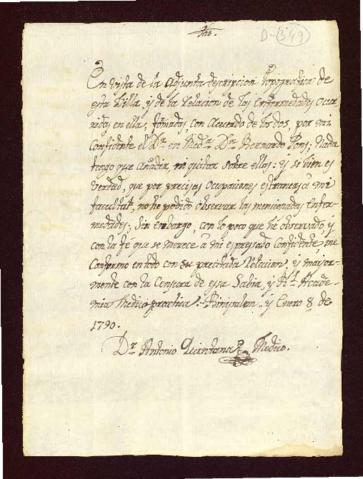 D-(549)
En vista de la adjunta descripcion topografica de
esta Villa, y de la relacion de las Enfermedades ocur
ridas en ella; formadas con acuerdo de los dos, por mi
Confidente el Dr. en Medna. Dn. Bernardo Pons, Nada
tengo que añadir, ni quitar sobre ellas: y si bien es
verdad, que por precisas Ocupaciones estrañas a mi
facultad, no he podido observar las mencionadas Enfer
medades; Sin embargo, con lo poco que he observado, y
con la fé que se merece a mi expresado Confidente, me
Conformo en todo con su precitada Relacion, y mayor-
mente con la Censura de esa Sabia, y Rl. Acade-
mia Medico-practica. y Enero 8 de
1790.
Dr. Antonio Quintana Medico.